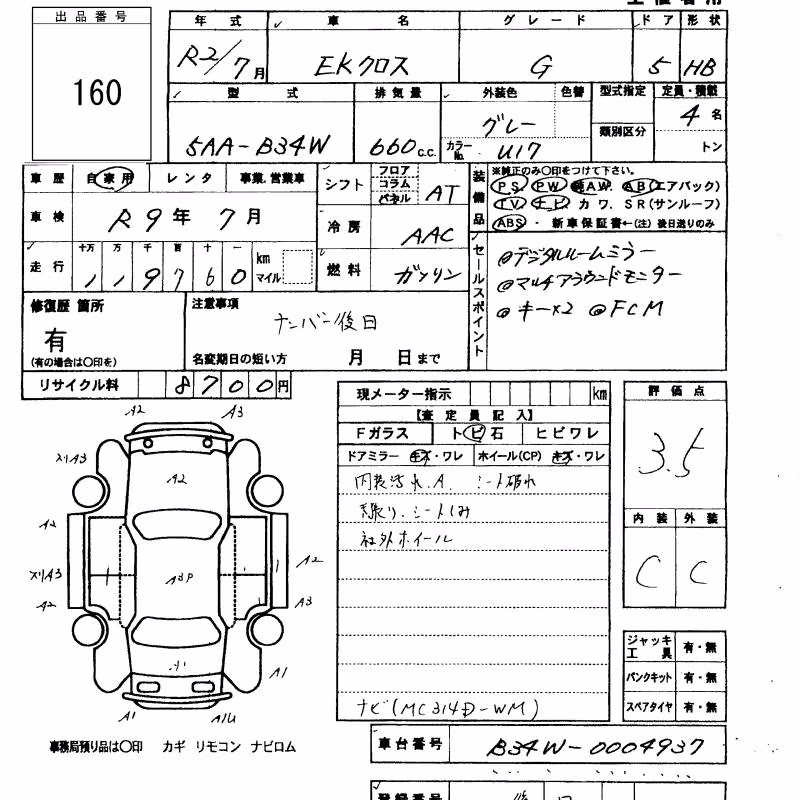 出品番号
160
年式 車名 グレード ドア 形状
R2/7月 EKクロス G 5 HB
型式 排気量 外装色 色替 型式指定 定員・積載
5AA-B34W 660c.c. グレー 4名
カラーNo. U17 類別区分 トン
車歴 自家用 レンタ 事業.営業車
シフト フロア コラム パネル AT
装備品 ※純正のみ〇印をつけて下さい。
PS PW AW. AB(エアバッグ)
TV ナビ カワ. SR(サンルーフ)
ABS・新車保証書←(注)後日送りのみ
車検 R9年7月
冷房 AAC
走行 十万 万 千 百 十 一 km マイル
119760
燃料 ガソリン
セールスポイント
@デジタルルームミラー
@マルチアラウンドモニター
@キー×2 @FCM
修復歴 箇所
有
(有の場合は〇印を)
注意事項
ナンバー後日
名変期日の短い方 月 日まで
リサイクル料 8700円
現メーター指示 km
【査定員記入】
Fガラス トビ石 ヒビワレ
ドアミラー キズ・ワレ ホイール(CP) キズ・ワレ
シート破れ
社外ホイール
ナビ(MC314D-WM)
評価点
3.5
内装 外装
C C
A2 A3
スリA3
A2
A2
スリA3 A3P A2
A2 A3
A1
A1
ジャッキ 工具 有・無
パンクキット 有・無
スペアタイヤ 有・無
事務局預り品は〇印 カギ リモコン ナビロム
車台番号 B34W-0004937
登録番号